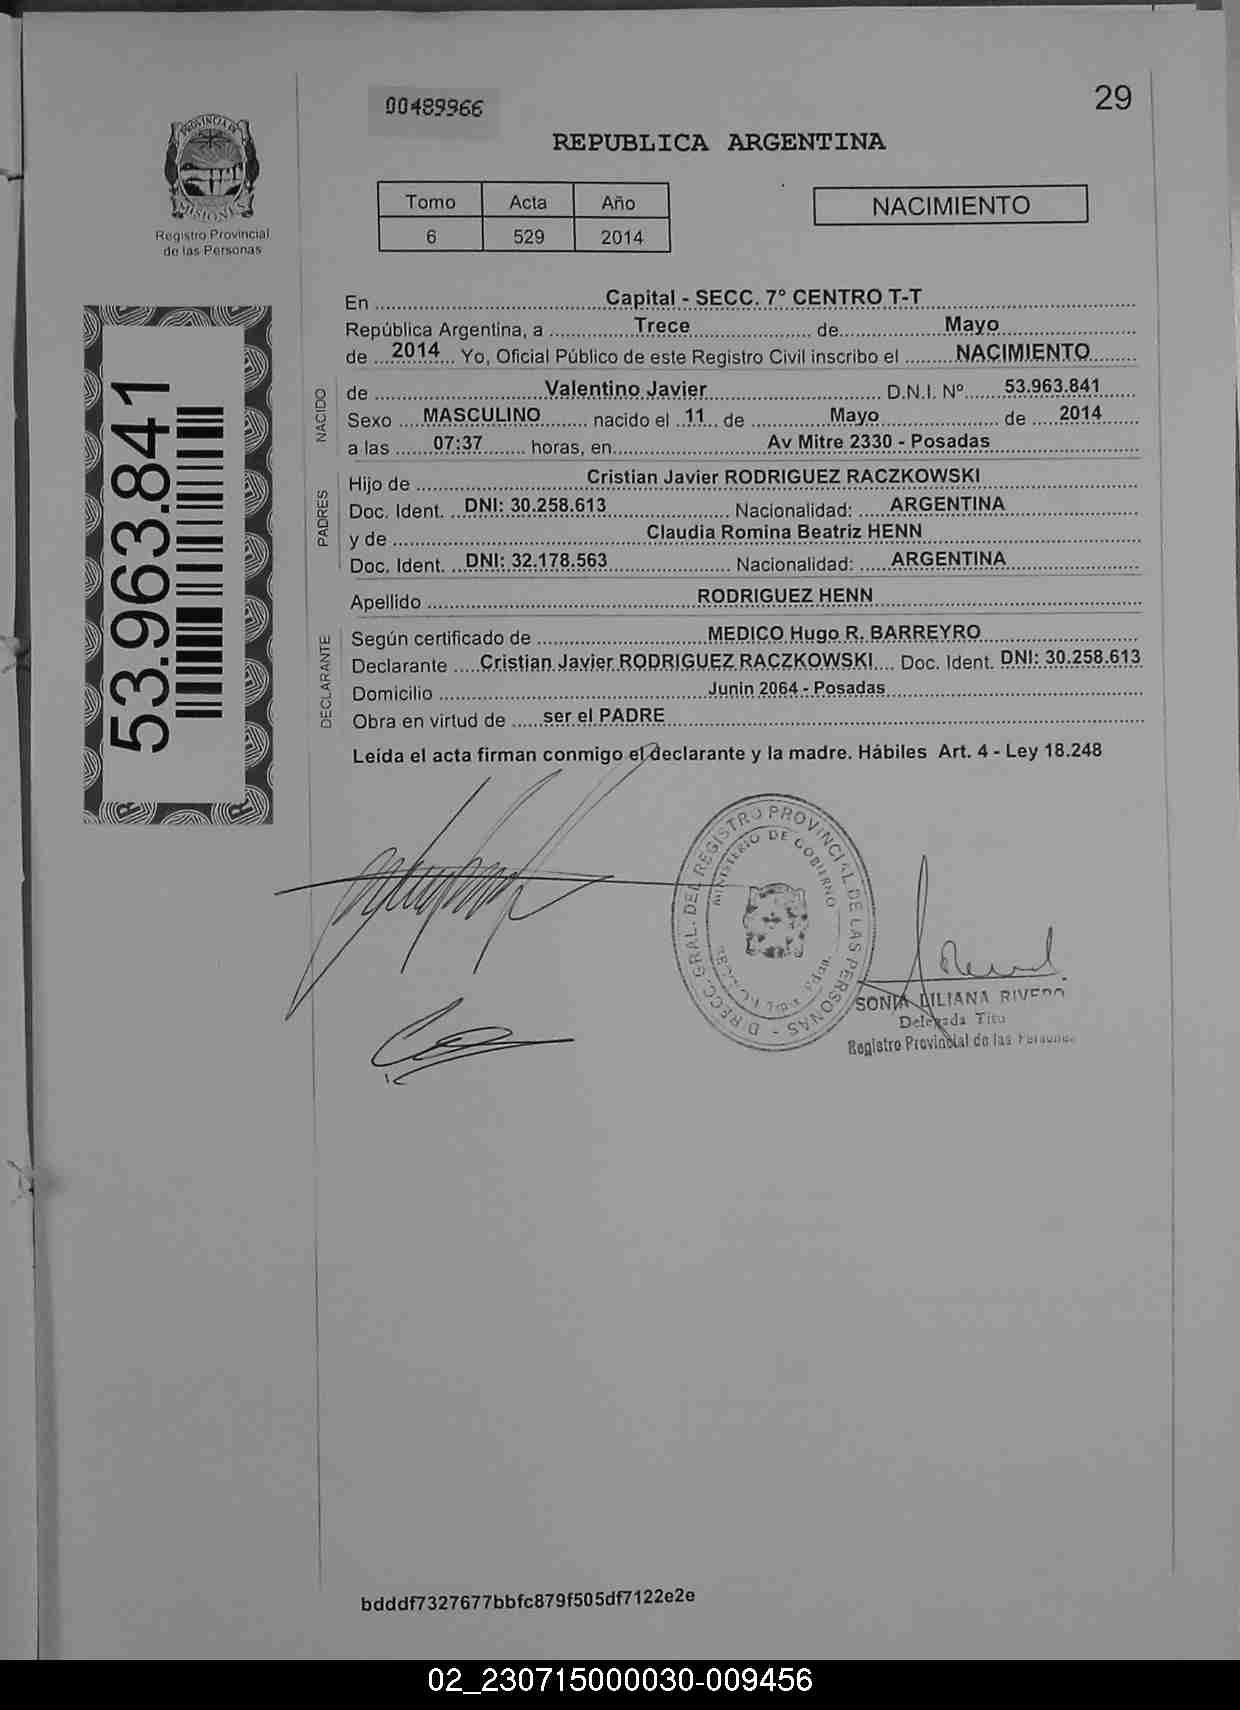 00489966
29
REPUBLICA ARGENTINA
PROVINCIA DE
MISIONES
Registro Provincial
de las Personas
Tomo Acta Año
6 529 2014
NACIMIENTO
En Capital - SECC. 7° CENTRO T-T
República Argentina, a Trece de Mayo
de 2014 Yo, Oficial Público de este Registro Civil inscribo el NACIMIENTO
NACIDO
de Valentino Javier D.N.I. Nº 53.963.841
Sexo MASCULINO nacido el 11 de Mayo de 2014
a las 07:37 horas, en Av Mitre 2330 - Posadas
PADRES
Hijo de Cristian Javier RODRIGUEZ RACZKOWSKI
Doc. Ident. DNI: 30.258.613 Nacionalidad: ARGENTINA
y de Claudia Romina Beatriz HENN
Doc. Ident. DNI: 32.178.563 Nacionalidad: ARGENTINA
Apellido RODRIGUEZ HENN
DECLARANTE
Según certificado de MEDICO Hugo R. BARREYRO
Declarante Cristian Javier RODRIGUEZ RACZKOWSKI Doc. Ident. DNI: 30.258.613
Domicilio Junin 2064 - Posadas
Obra en virtud de ser el PADRE
Leida el acta firman conmigo el declarante y la madre. Hábiles Art. 4 - Ley 18.248
53.963.841
DIRECC. GRAL. DEL REGISTRO PROVINCIAL DE LAS PERSONAS
MINISTERIO DE GOBIERNO
SONIA LILIANA RIVERO
Delegada
Registro Provincial de las Personas
bdddf7327677bbfc879f505df7122e2e
02_230715000030-009456